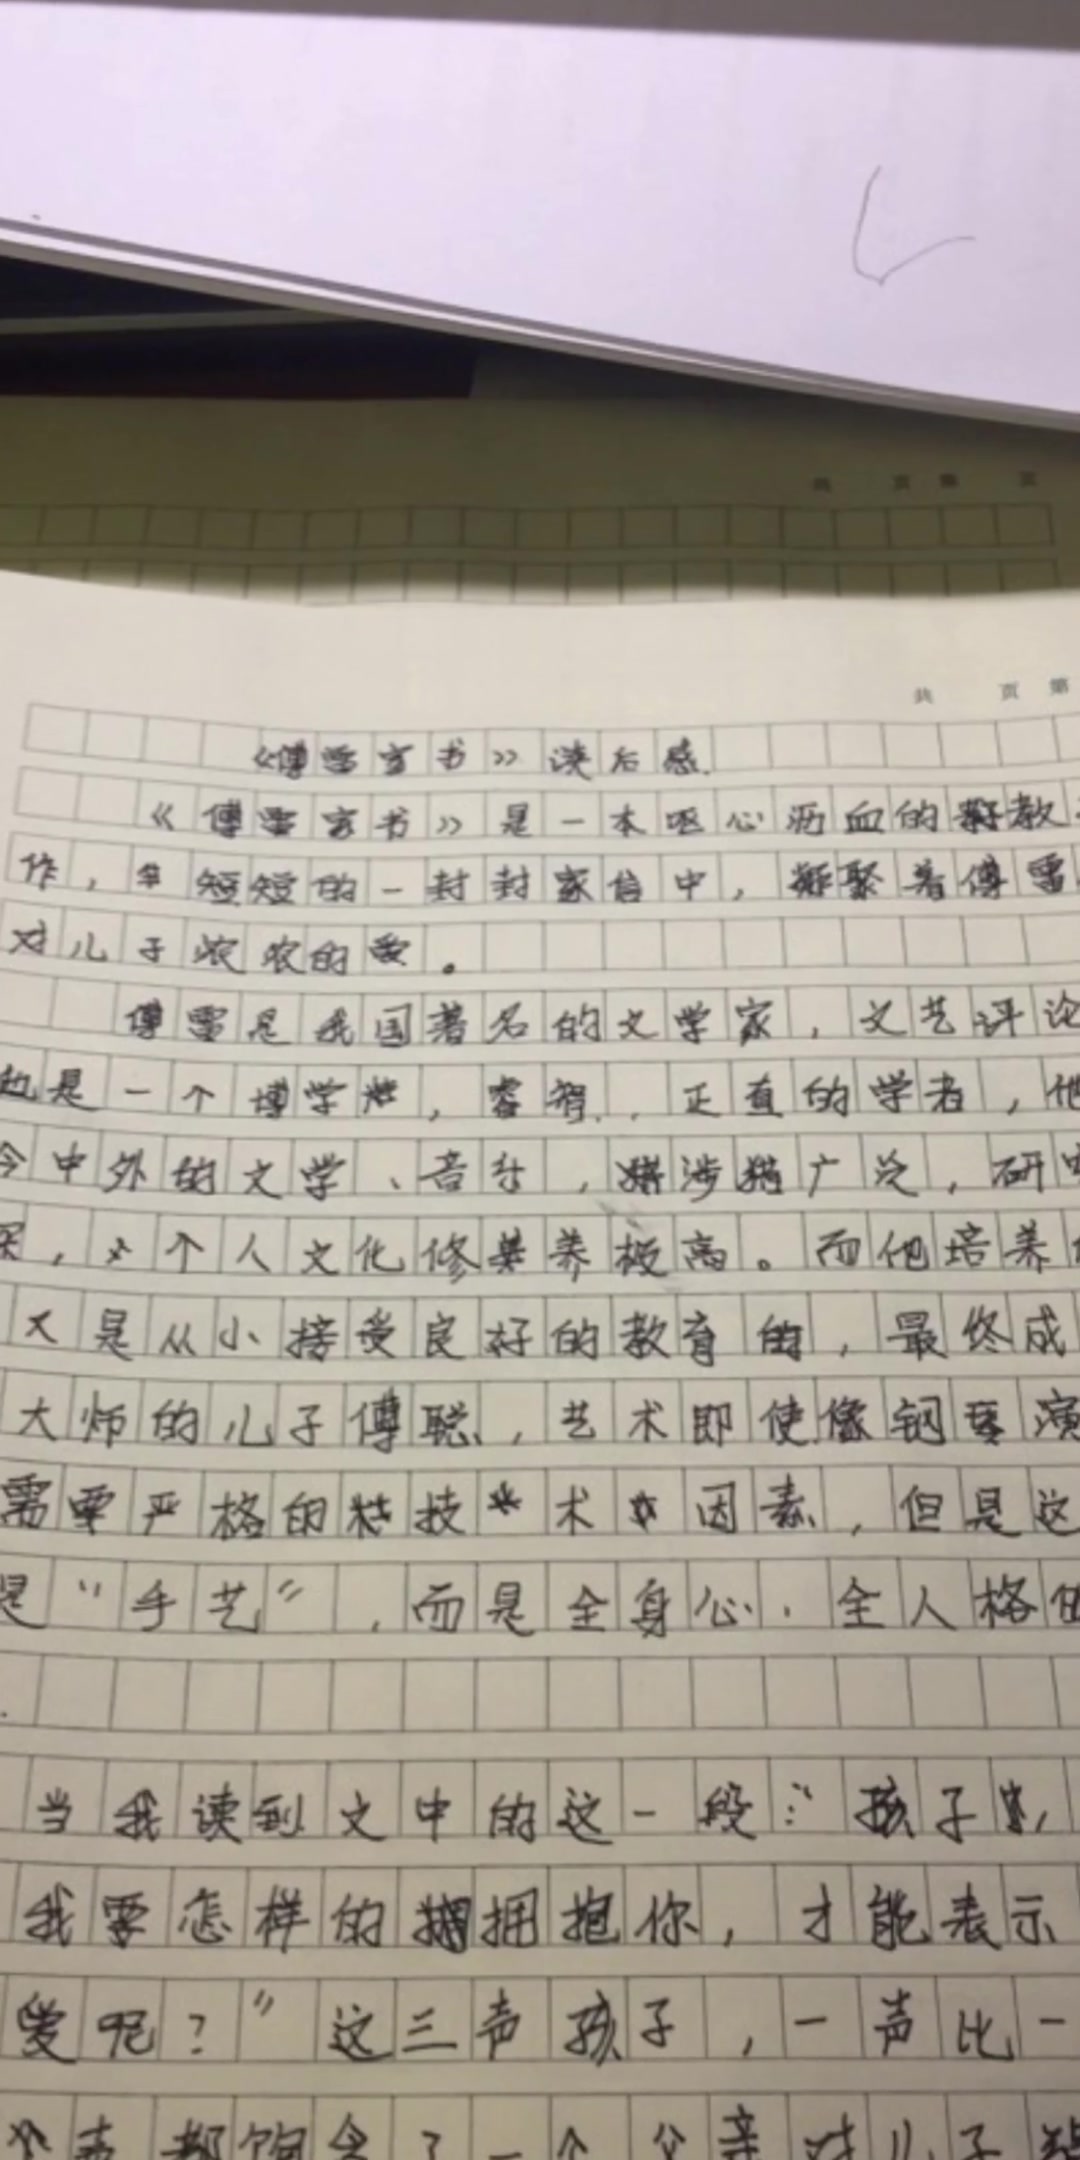 共 页 第 页
共 页 第
《傅雷家书》读后感
《傅雷家书》是一本呕心沥血的教
作，短短的一封封家信中，凝聚着傅雷
对儿子浓浓的爱。
傅雷是我国著名的文学家，文艺评论
也是一个博学，睿智，正直的学者，他
今中外的文学、音乐，涉猎广泛，研
深，个人文化修养极高。而他培养
又是从小接受良好的教育的，最终成
大师的儿子傅聪，艺术即使像钢琴演
需要严格的技术因素，但是这
是“手艺”，而是全身心，全人格
当我读到文中的这一段：“孩子，
我要怎样的拥抱你，才能表示
爱呢？”这三声孩子，一声比一
声都饱含了一个父亲对儿子